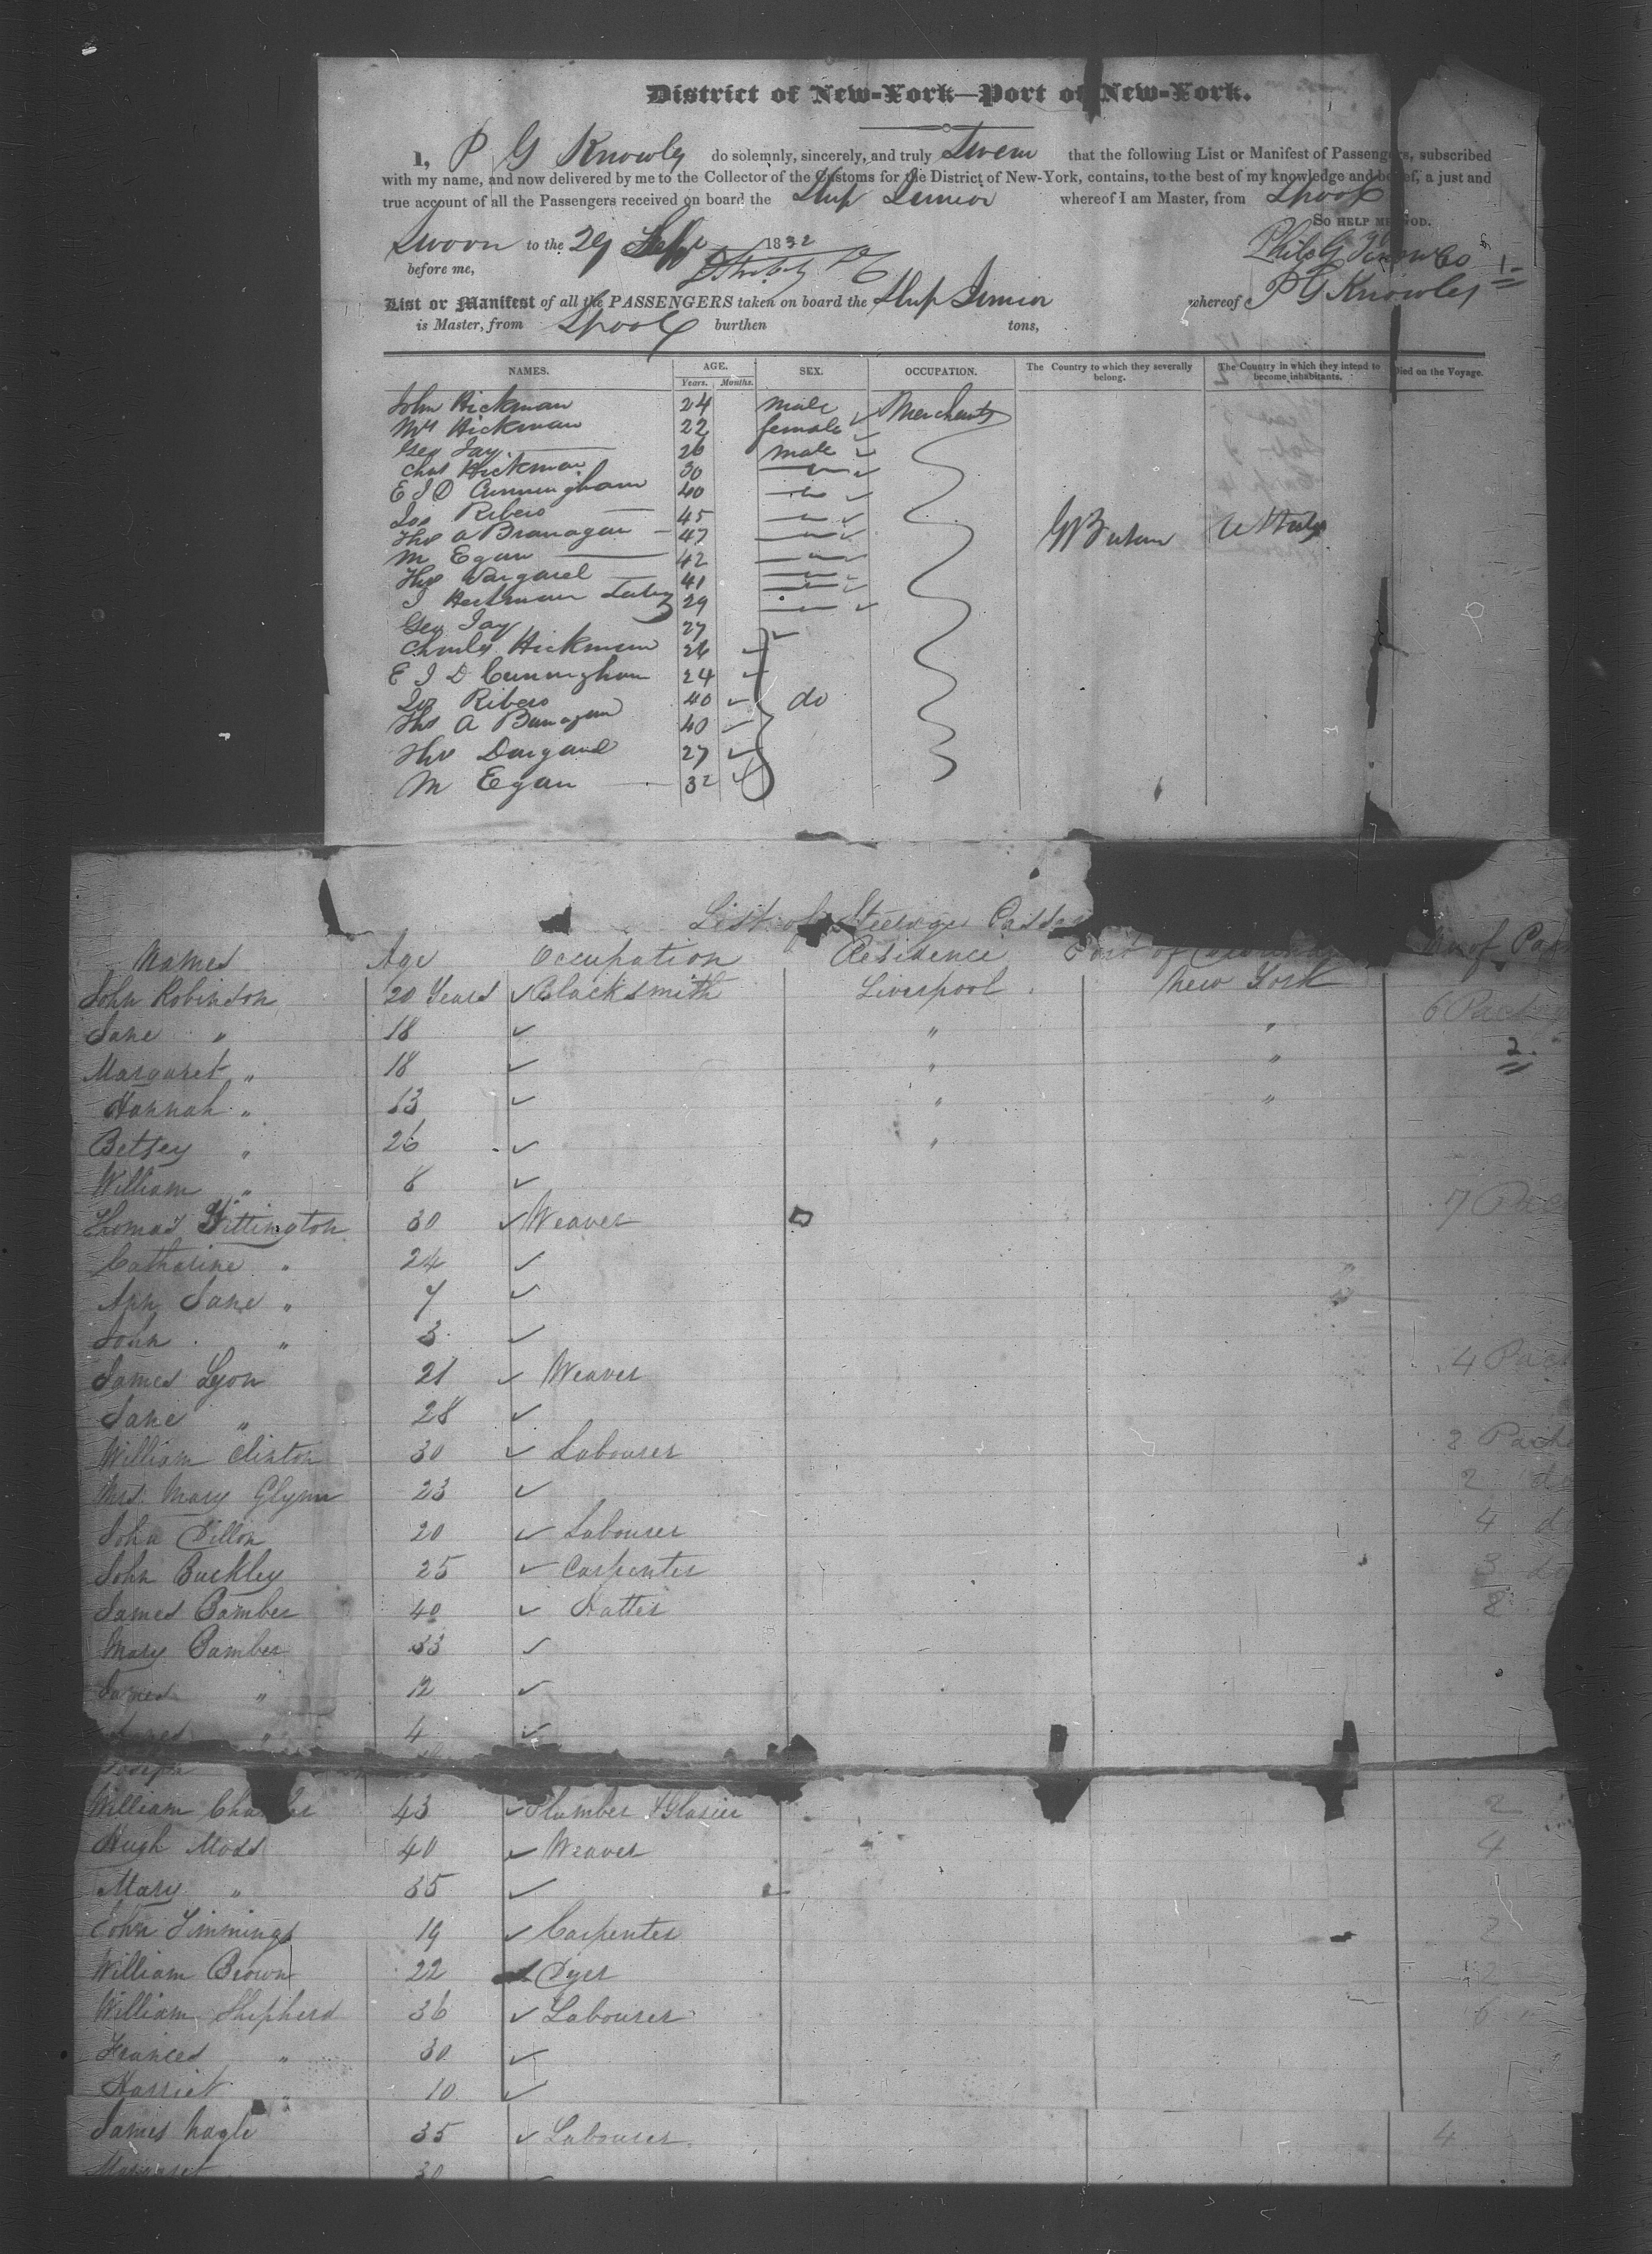 District of New-York—Port of New-York.
I, P G Knowles do solemnly, sincerely, and truly Swear that the following List or Manifest of Passengers, subscribed
with my name, and now delivered by me to the Collector of the Customs for the District of New-York, contains, to the best of my knowledge and belief, a just and
true account of all the Passengers received on board the Ship Junior whereof I am Master, from Lpool
So help me God.
Sworn to the 29 Sept 1832
before me,
List or Manifest of all the PASSENGERS taken on board the Ship Junior whereof P G Knowles
is Master, from Lpool burthen tons,
NAMES. AGE. SEX. OCCUPATION. The Country to which they severally belong. The Country in which they intend to become inhabitants. Died on the Voyage.
Years. Months.
John Hickman 24 male Merchants
Mrs Hickman 22 female
Geo Jay 26 male
Chas Hickman 30
E J D Cunningham 40
Jos Ribero 45
Thos A Branagan 47
M Egan 42
Thos 41
J Hickman 29
Geo Jay 27
Charles Hickman 26
E J D Cunningham 24
Jos Ribero 40 do
Thos A Branagan 40
Thos Dargand 27
M Egan 32
List of Steerage Passe
Names Age Occupation Residence Port of No of Pac
John Robinson 20 Years Blacksmith Liverpool New York 6 Pack
Jane " 18 " "
Margaret " 18 " "
2
Hannah " 13 " "
Betsey " 26 "
William " 6
Thomas Gittington 30 Weaver 7 Pac
Catharine " 24
Ann Jane " 7
John " 3
James Lyon 21 Weaver 4 Pack
Jane " 28
William Clinton 30 Labourer 2 Packe
Mrs. Mary Glynn 23 2 do
John Dillon 20 Labourer 4 d
John Buckley 25 Carpenter 3 do
James Bamber 40 Hatter 8
Mary Bamber 33
James " 12
" 4
Joseph
William Cha 43 Plumber & Glasier 2
Hugh Moss 40 Weaver 4
Mary " 35
John Timmings 19 Carpenter 2
William Brown 22 Dyer 2
William Shepherd 36 Labourer 6
Frances " 30
Harriet " 10
James Nagle 35 Labourer 4
Margaret 30